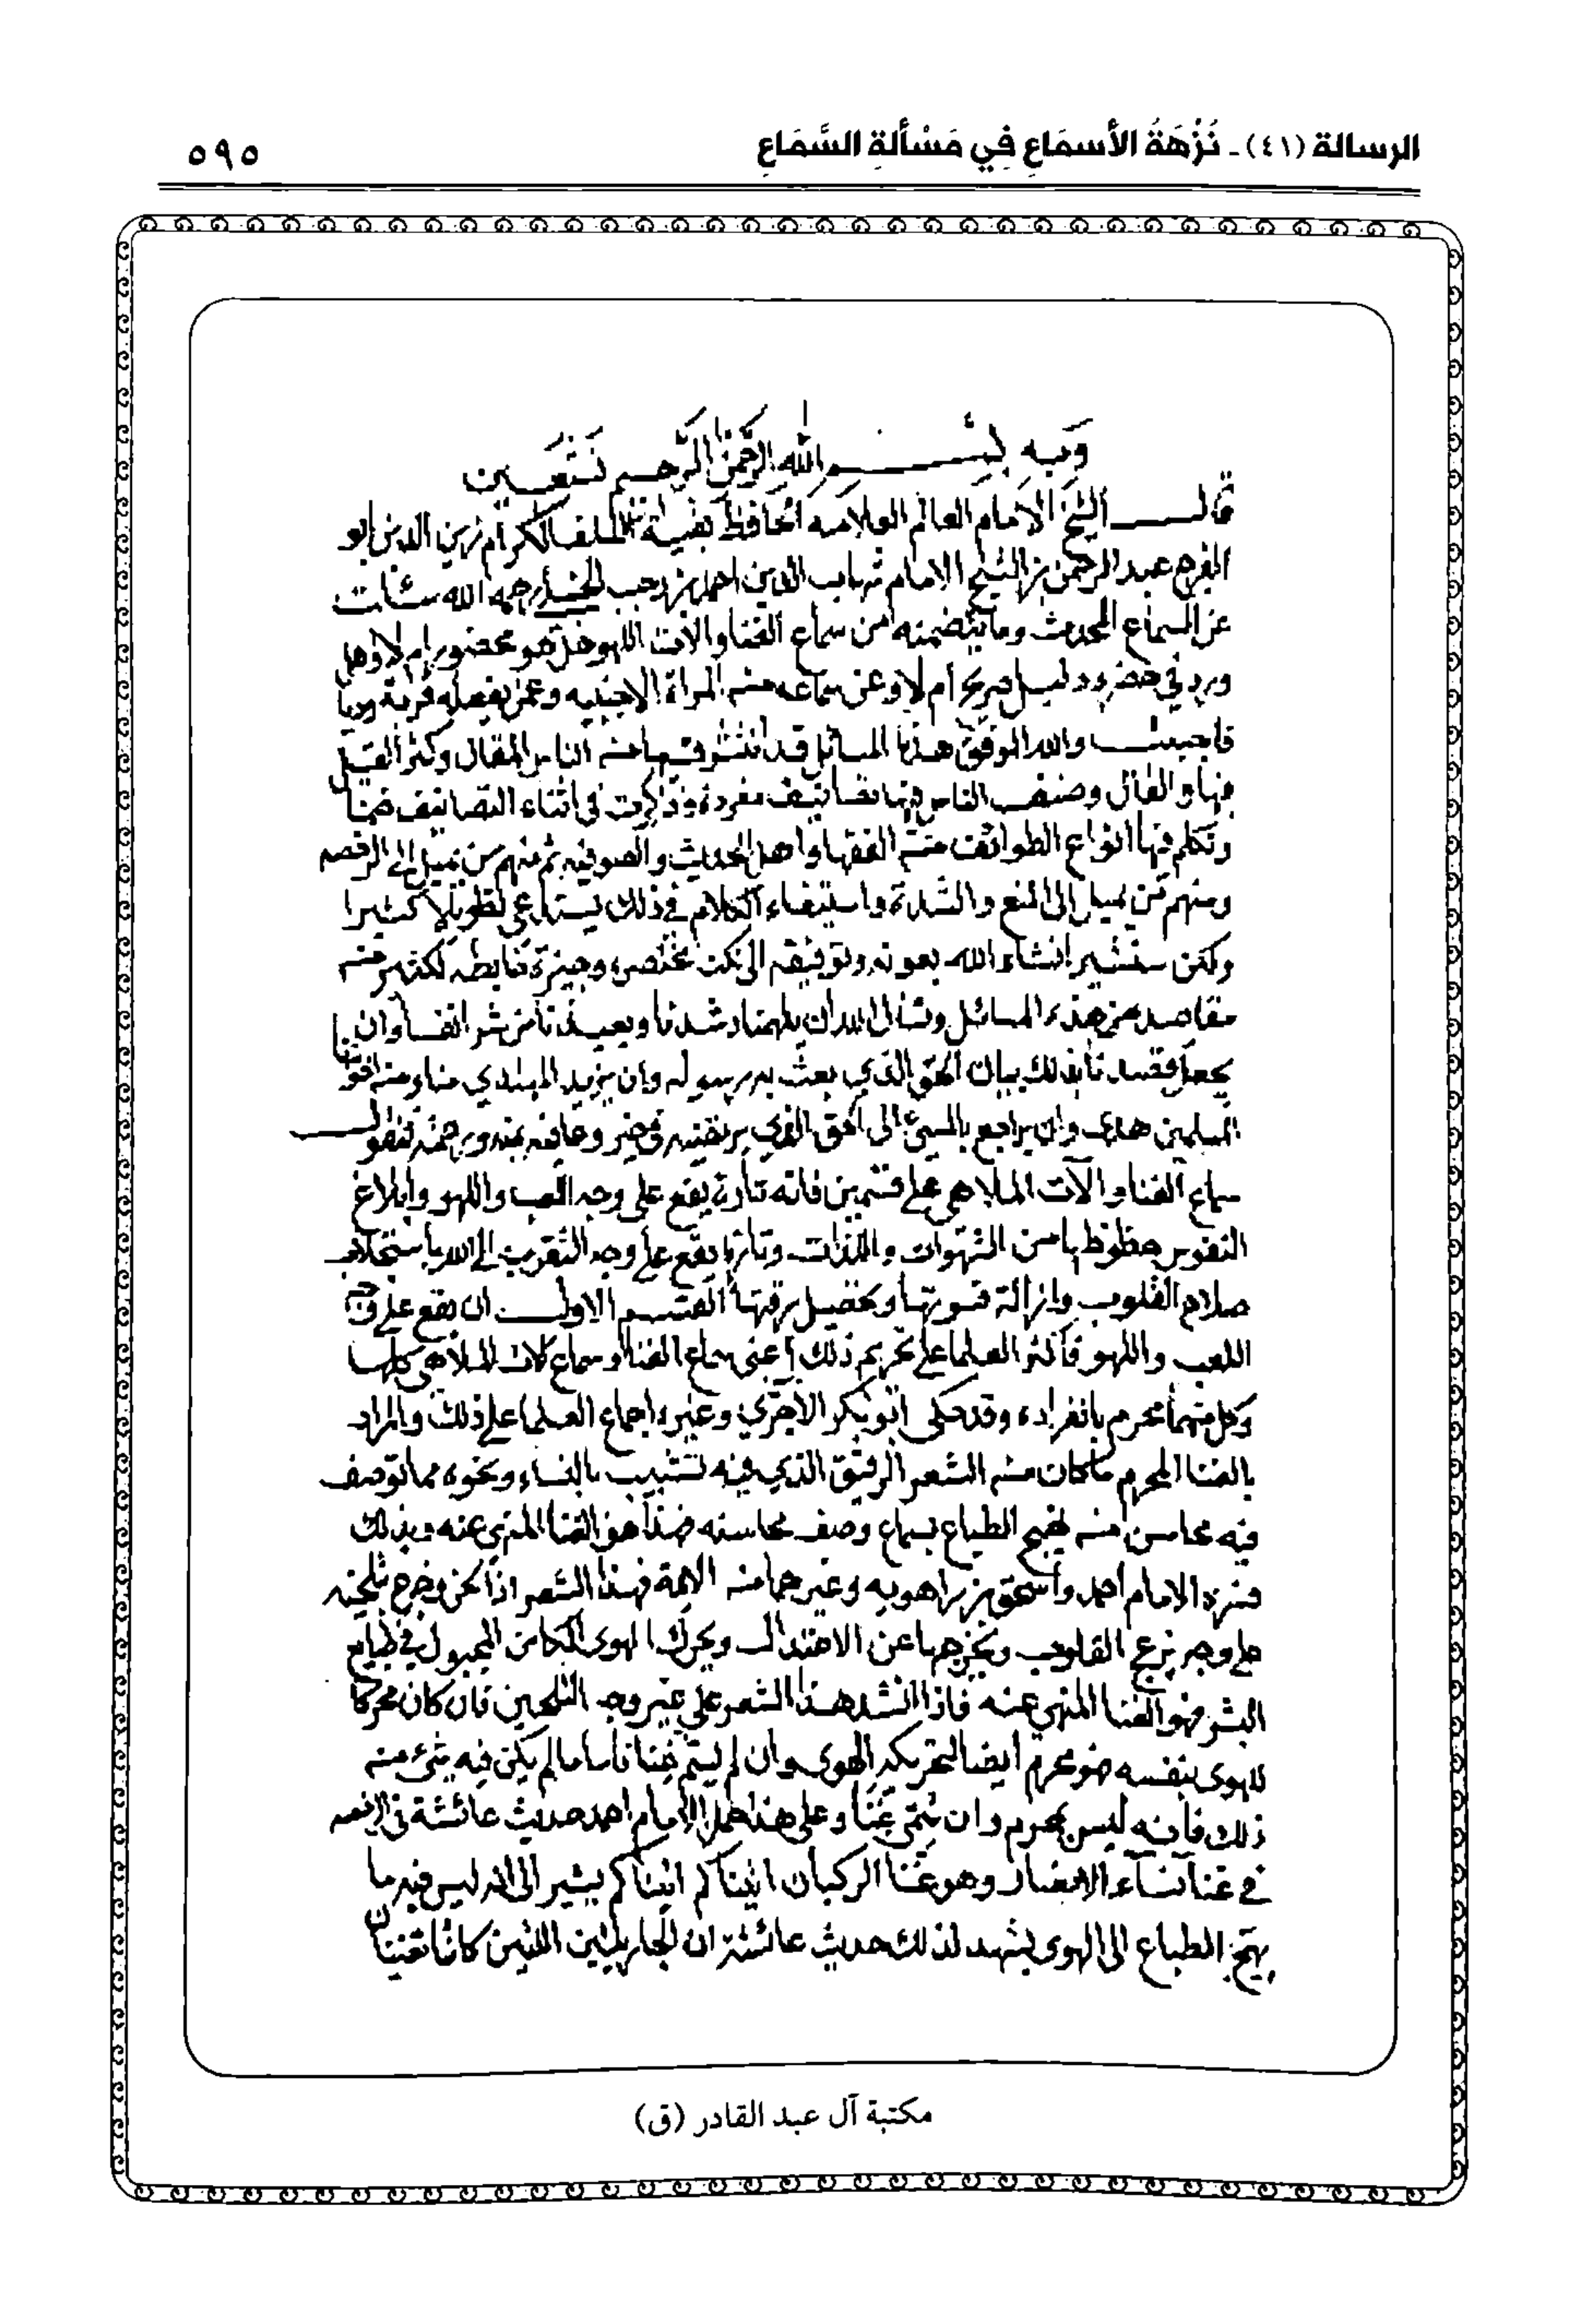 الرسالة (٤١) - نُزْهَةُ الأسمَاعِ فِي مَسْألَةِ السَّمَاعِ
٥٩٥
وَبِهِ بِسْمِ اللهِ الرَّحْمَنِ الرَّحِيمِ نَسْتَعِين
قال الشيخ الإمام العالم العلامه الحافظ بقية السلف الكرام زين الدين ابو
الفرج عبد الرحمن بن الشيخ الامام شهاب الدين احمد بن رجب الحنبلي رحمه الله سئلت
عن السماع المحدث وما يتضمنه من سماع الغنا والات اللهو هل هو محضور ام لا وهل
ورد في حضره دليل صريح أم لا وعن سماعه من المراة الاجنبيه وعمن يفعله قربة وديناً
فاجبت والله الموفق هذه المسائل قد انتشر فيها من الناس المقال وكثر القيل
فيها والقال وصنف الناس فيها تصانيف مفردة وذكرت في اثناء التصانيف ضمناً
وتكلم فيها انواع الطوائف من الفقها واهل الحديث والصوفيه ثم منهم من يميل إلى الرخصه
ومنهم من يميل الى المنع والشدة واستيفاء الكلام في ذلك يستدعي تطويلا كثيرا
ولكن سنشير انشاء الله بعونه وتوفيقه الى نكت مختصره وجيزة ضابطه لكثير من
مقاصد هذه المسائل ونسأل الله ان يلهمنا رشدنا ويعيذنا من شر انفسنا وان
يجعل قصدنا بذلك بيان الحق الذي بعث به رسوله وان يزيد المهتدي منا ومن اخواننا
المسلمين هدى وان يراجع بالمسيئ الى الحق الذي يرتضيه في خير وعافيه بمنه ورحمته فنقول
سماع الغنا والآت الملاهي على قسمين فانه تارة يقع على وجه اللعب واللهو وابلاغ
النفوس حظوظها من الشهوات واللذات وتارة يقع على وجه التقرب الى الله باستجلاب
صلاح القلوب وازالة قسوتها وتحصيل رقتها القسم الاول ان يقع على وجه
اللعب واللهو فأكثر العلما على تحريم ذلك أعني سماع الغنا وسماع الات الملاهي كلها
وكل منهما محرم بانفراده وقد حكى ابو بكر الآجري وغيره اجماع العلما على ذلك والمراد
بالغنا المحرم ما كان من الشعر الرقيق الذي فيه تشبيب بالنساء ونحوه مما توصف
فيه محاسن من تهيج الطباع بسماع وصف محاسنه فهذا هو الغنا المنهي عنه وبذلك
فسره الامام احمد وأسحق بن راهويه وغيرهما من الايمة فهذا الشعر اذا لحن وخرج تلحينه
على وجه يزعج القلوب ويخرجها عن الاعتدال ويحرك الهوى الكامن المجبول في طباع
البشر فهو الغنا المنهي عنه فاذا انشد هذا الشعر على غير وجه التلحين فان كان محركا
للهوى بنفسه فهو محرم أيضا لتحريكه الهوى وان لم يسم غنا فاما ما لم يكن فيه شيء من
ذلك فأنه ليس بمحرم وان سمي غنا وعلى هذا حمل الامام احمد حديث عائشة في الرخصه
في غنا نساء الانصار وهو غنا الركبان اتيناكم اتيناكم يشير الى انه ليس فيه ما
يهيج الطباع الى الهوى يشهد لذلك حديث عائشة ان الجاريتين اللتين كانتا تغنيان
مكتبة آل عبد القادر (ق)